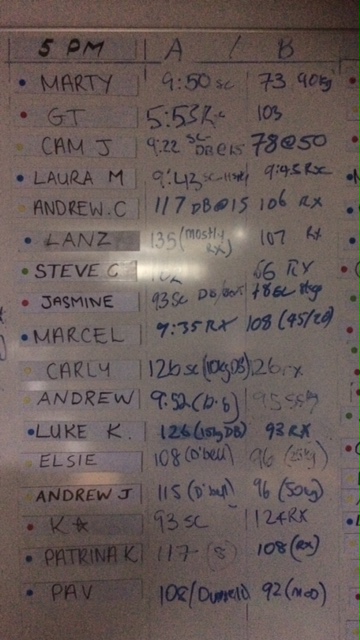 5 PM A / B
MARTY 9:50 sc 73 90kg
GT 5:53 103
CAM J 9:22 SC- DB@15 78@50
LAURA M 9:43 9:45 Rsc
ANDREW.C 117 DB@15 106 RX
LANZ 135 (mostly RX) 107 RX
STEVE C 56 RX
JASMINE 93 SC 78 SC
MARCEL 9:35 RX 108 (45/20)
CARLY 126 sc (10kgDB) 126 rx
ANDREW 9:52 (D.B)
LUKE K. 126 (15kgDB) 93 RX
ELSIE 108 (D'bell) 96
ANDREW J 115 (D'bell) 96 (50kg)
K☆ 93 SC 124 RX
PATRINA K 117 108 (RX)
PAV 108/ 92 (mod)